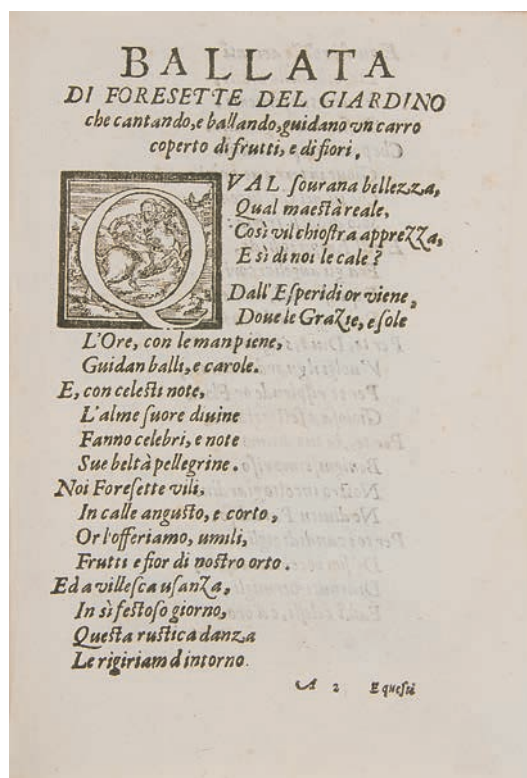 BALLATA
DI FORESETTE DEL GIARDINO
che cantando, e ballando, guidano vn carro
coperto di frutti, e di fiori.
QVAL sourana bellezza,
Qual maestà reale,
Così vil chiostra apprezza,
E sì di noi le cale?
Dall'Esperidi or viene,
Doue le Grazie, e sole
L'Ore, con le man piene,
Guidan balli, e carole.
E, con celesti note,
L'alme suore diuine
Fanno celebri, e note
Sue beltà pellegrine.
Noi Foresette vili,
In calle angusto, e corto,
Or l'offeriamo, umili,
Frutti e fior di nostro orto.
Ed a villesca usanza,
In sì festoso giorno,
Questa rustica danza
Le rigiriam d'intorno.
A 2 E questi